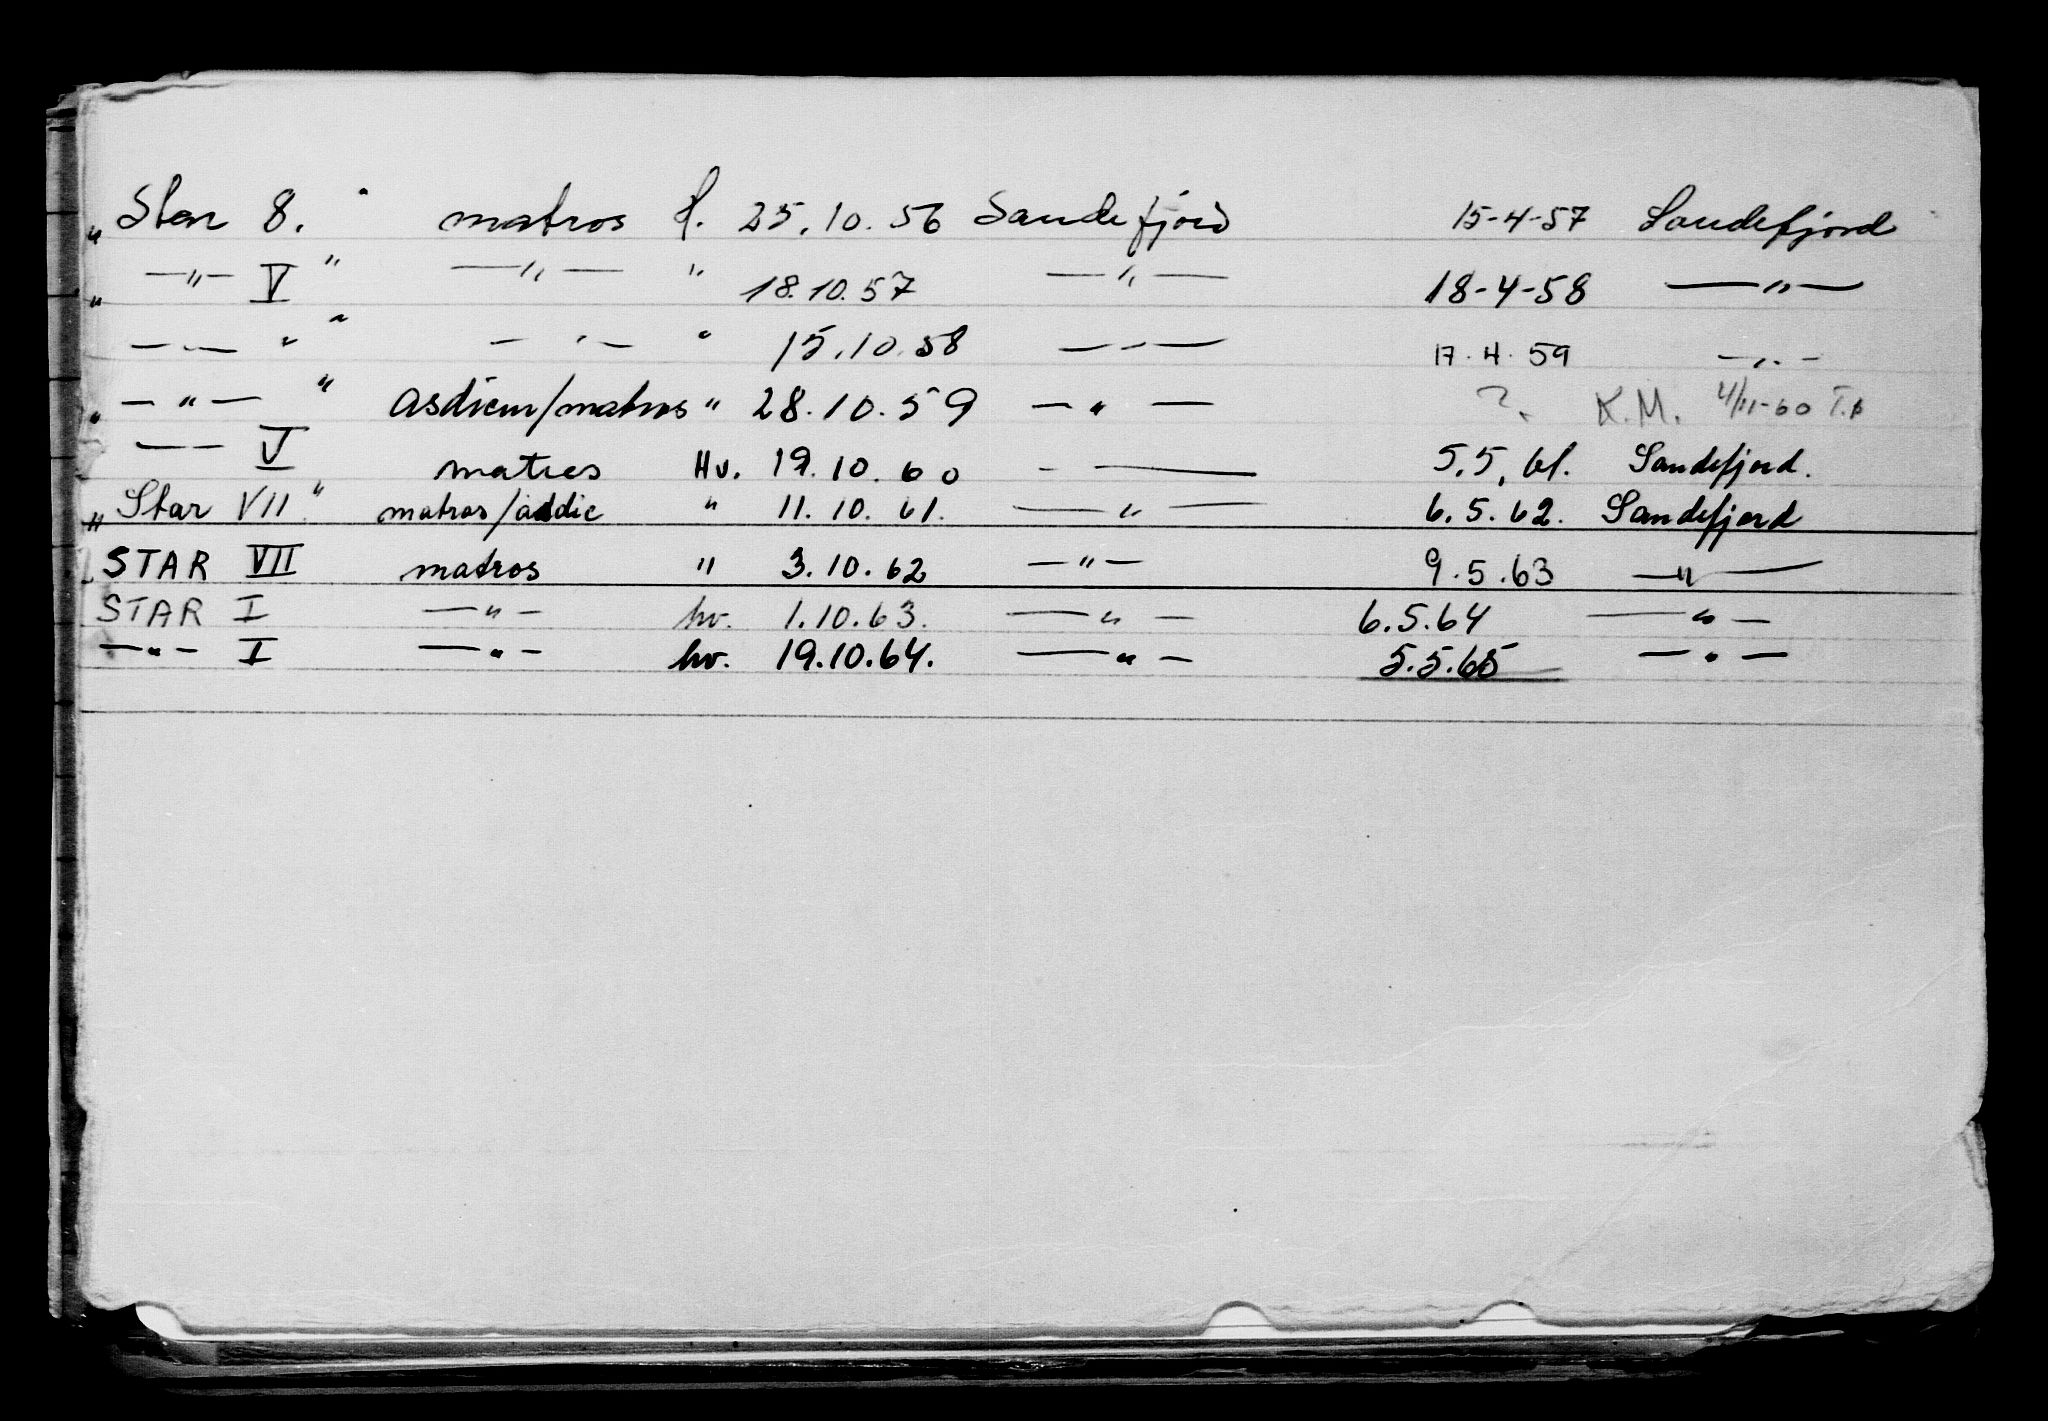 " Star 8. " matros H. 25.10.56 Sandefjord 15-4-57 Sandefjord
" —"— V " —"— " 18.10.57 —"— 18-4-58 —"—
—"— " " —"— " 15.10.58 —"— 17.4.59 —"—
" —"— " asdicm/matros " 28.10.59 —"— ?. K.M. 4/11-60
—"— V matros Hv. 19.10.60 —— 5.5.61. Sandefjord.
" Star VII " matros/asdic " 11.10.61. —"— 6.5.62. Sandefjord
STAR VII matros " 3.10.62 —"— 9.5.63 —"—
STAR I —"— hv. 1.10.63. —"— 6.5.64 —"—
—"— I —"— hv. 19.10.64. —"— 5.5.65 —"—